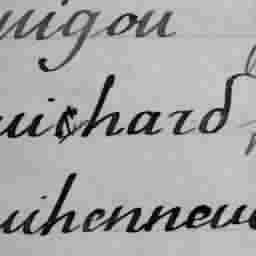 uigou
uichard
uihenneuc